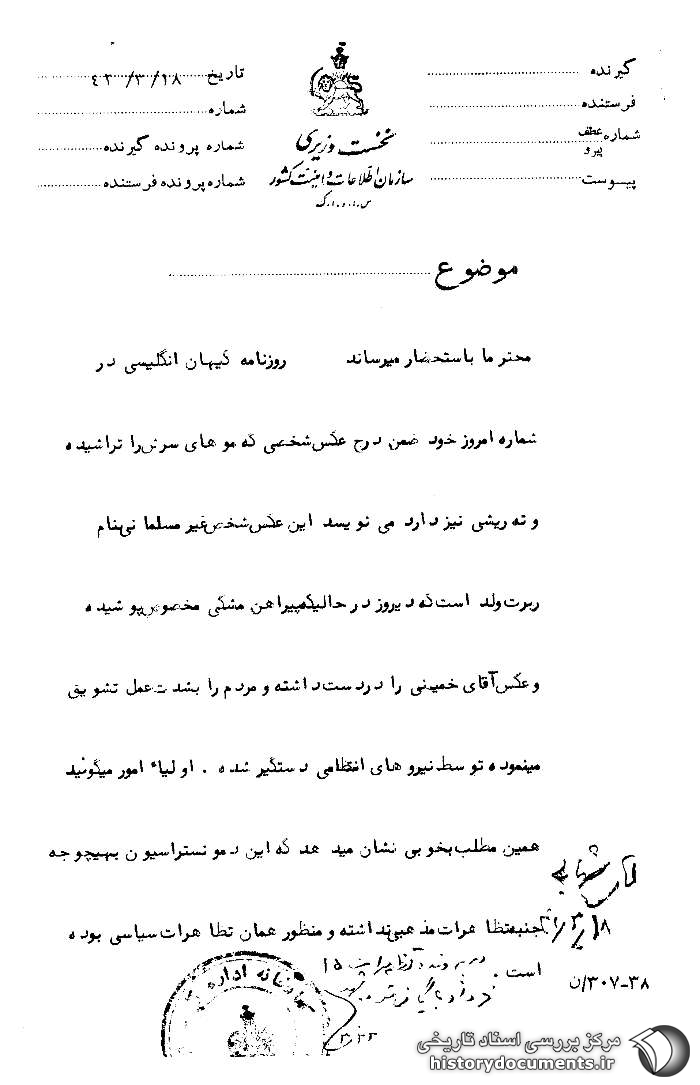 گیرنده
فرستنده
شماره عطف
پیرو
پیوست
نخست وزیری
سازمان اطلاعات و امنیت کشور
س.ا.و.ا.ک
تاریخ ۴۲/۳/۱۸
شماره
شماره پرونده گیرنده
شماره پرونده فرستنده
موضوع
محترما باستحضار میرساند روزنامه کیهان انگلیسی در
شماره امروز خود ضمن درج عکس شخصی که موهای سرش را تراشیده
و ته ریشی نیز دارد می نویسد این عکس شخص غیر مسلمانی بنام
ربرت ولد است که دیروز در حالیکه پیراهن مشکی مخصوص پوشیده
و عکس آقای خمینی را در دست داشته و مردم را بشدت عمل تشویق
مینموده توسط نیروهای انتظامی دستگیر شده . اولیاء امور میگوئید
همین مطلب بخوبی نشان میدهد که این دمونستراسیون بهیچوجه
جنبه تظاهرات مذهبی نداشته و منظور همان تظاهرات سیاسی بوده
است .
۱۸/۳
در پرونده تظاهرات ۱۵
خرداد بایگانی شود
۳۰۷-۳۸/ن
مرکز بررسی اسناد تاریخی
historydocuments.ir